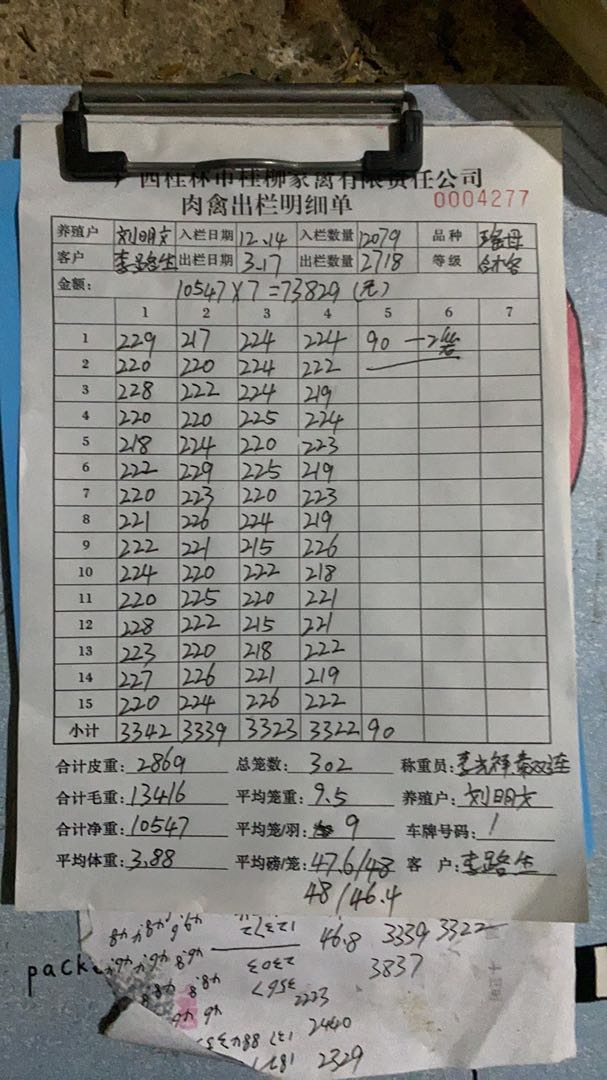 广西桂林市桂柳家禽有限责任公司
肉禽出栏明细单 0004277
养殖户 刘明文 入栏日期 12.14 入栏数量 12079 品种 瑶母
客户 李路生 出栏日期 3.17 出栏数量 2718 等级 合格
金额: 10547×7=73829(元)
1 2 3 4 5 6 7
1 229 217 224 224 90 一2笼
2 220 220 224 222
3 228 222 224 219
4 220 220 225 224
5 218 224 220 223
6 222 229 225 219
7 220 223 220 223
8 221 226 224 219
9 222 221 215 226
10 224 220 222 218
11 220 225 220 221
12 228 222 215 221
13 223 220 218 222
14 227 226 221 219
15 220 224 226 222
小计 3342 3339 3323 3322 90
合计皮重: 2869 总笼数: 302 称重员:
合计毛重: 13416 平均笼重: 9.5 养殖户: 刘明文
合计净重: 10547 平均笼/羽: 9 车牌号码: 1
平均体重: 3.88 平均磅/笼: 47.6/48 客 户: 李路生
48/46.4
46.8 3339 3322
3837
2303
3567
2223
2440
2329
pack